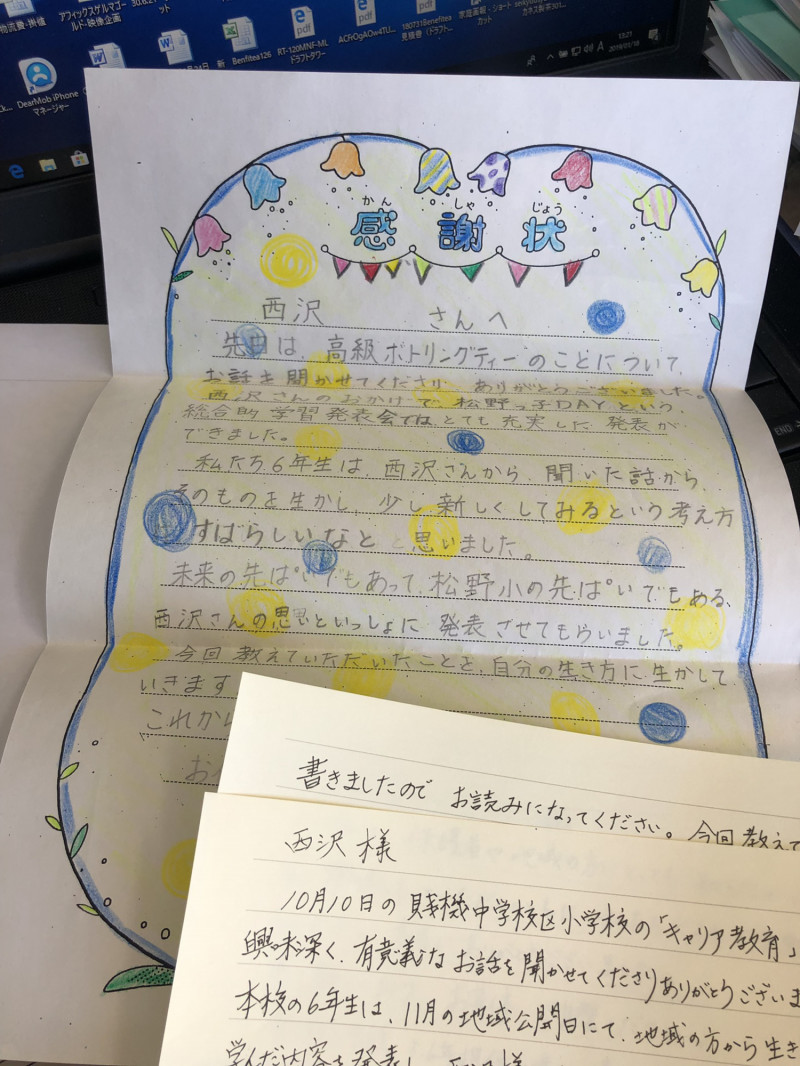 アフィックスゲルマゴールド-映像企画
DearMob iPhone マネージャー
Benfitea126
RT-120MNF-ML ドラフトタワー
ACFrOgAOw4TU...
180731Benefitea
13:21
2019/01/18
END
かん しゃ じょう
感謝状
西沢 さんへ
先日は、高級ボトリングティーのことについて、
お話を聞かせてくださり、ありがとうございました。
西沢さんのおかげで、松野っ子DAYという、
総合的学習発表会では、とても充実した発表が
できました。
私たち6年生は、西沢さんから、聞いた話から
そのものを生かし、少し新しくしてみるという考え方
すばらしいなと思いました。
未来の先ぱいでもあって、松野小の先ぱいでもある、
西沢さんの思いといっしょに発表させてもらいました。
今回教えていただいたことを、自分の生き方に生かして
いきます
これから
書きましたので お読みになってください。今回教えて
西沢様
10月10日の賤機中学校区小学校の「キャリア教育」
興味深く、有意義なお話を聞かせてくださりありがとうございま
本校の6年生は、11月の地域公開日にて、地域の方から生き
学んだ内容を発表し